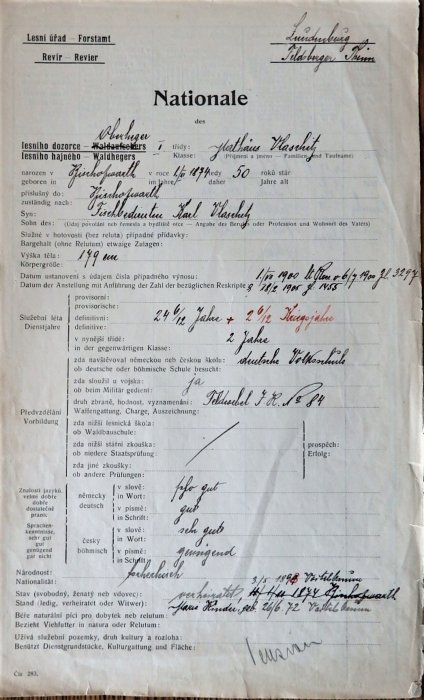 Lesní úřad - Forstamt
Lundenburg
Revír - Revier
Feldsberger
Nationale
des
Oberheger
lesního dozorce - Waldaufsehers I třídy: Mathäus Vlaschitz
lesního hajného - Waldhegers Klasse: (Příjmení a jméno - Familien- und Taufname)
narozen v Bischofwarth v roce 1874 tedy 50 roků stár
geboren in im Jahre also Jahre alt
příslušný do: Bischofwarth
zuständig nach:
Syn: Karl Vlaschitz
Sohn des: (Udaj povolání neb řemesla a bydliště otce - Angabe des Berufes oder Profession und Wohnort des Vaters)
Služné v hotovosti (bez reluta) případné přídavky:
Bargehalt (ohne Relutum) etwaige Zulagen:
Výška těla: 179 cm
Körpergröße:
1900 6/7 1900 Zl. 3297
Datum ustanovení s údajem čísla případného výnosu:
Datum der Anstellung mit Anführung der Zahl der bezüglichen Reskripte: 1905 1455
provisorní:
provisorische:
Služební léta
Dienstjahre
definitivní: 24 6/12 Jahre + 2 6/12 Kriegsjahre
definitive:
v nynější třídě: 2 Jahre
in der gegenwärtigen Klasse:
zda navštěvoval německou neb českou školu: deutsche Volksschule
ob deutsche oder böhmische Schule besucht:
zda sloužil u vojska: ja
ob beim Militär gedient:
druh zbraně, hodnost, vyznamenání: Feldwebel I. R. No 84
Waffengattung, Charge, Auszeichnung:
Předvzdělání
Vorbildung
zda nižší lesnická škola:
ob Waldbauschule:
zda nižší státní zkouška: prospěch:
ob niedere Staatsprüfung: Erfolg:
zda jiné zkoušky:
ob andere Prüfungen:
Znalosti jazyků
velmi dobře
dobře
dostatečně
Sprachenkenntnisse,
sehr gut
gut
genügend
gar nicht
německy
deutsch
v slově: sehr gut
in Wort:
v písmě: gut
in Schrift:
česky
böhmisch
v slově: sehr gut
in Wort:
v písmě: genügend
in Schrift:
Národnost: tschechisch
Nationalität:
Stav (svobodný, ženatý neb vdovec): verheiratet
Stand (ledig, verheiratet oder Witwer):
Béře naturální píci pro dobytek neb relutum:
Bezieht Viehfutter in natura oder Relutum:
Užívá služební pozemky, druh kultury a rozloha:
Benützt Dienstgrundstücke, Kulturgattung und Fläche:
Čís. 293.